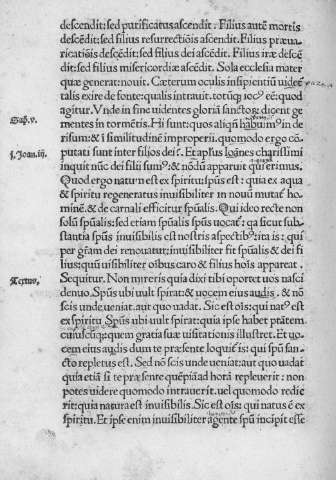 descendit: sed purificatus ascendit. Filius autẽ mortis
descẽdit: sed filius resurrectiõis ascendit. Filius præua-
ricatiõis descẽdit: sed filius dei ascẽdit. Filius iræ descẽ
dit: sed filius misericordiæ ascẽdit. Sola ecclesia mater
quæ generat: nouit. Cæterum oculis insipientiũ uidẽt
talis exire de fonte: qualis intrauit. totũq; ioc° eẽ: quod
agitur. Vnde in fine uidentes gloriã sanctoȝ: dicent ge-
mentes in tormẽtis. Hi sunt: quos aliqñ habuim° in de
Sap̃. v.
risum: & ĩ similitudinẽ improperii. quomodo ergo cõ
putati sunt inter filios dei &c. Et apl̃us Ioãnes charissimi
j. Joan. iij.
inquit nũc dei filii sum°: & nõdũ apparuit qđ erimus.
Quod ergo natum est ex spiritu: spũs est: quia ex aqua
& spiritu regeneratus inuisibiliter in nouũ mutaf ho
minẽ: & de carnali efficitur spũalis. Qui ideo recte non
solũ spũalis: sed etiam spũalis spũs uocaf: qa sicut sub-
stantia spũs inuisibilis est nostris aspectib°: ita is: qui
per gr̃am dei renouatur: inuisibiliter fit spũalis & dei fi
lius: quũ uisibiliter oĩbus caro & filius hoĩs appareat.
Textus.
Sequitur. Non mireris quia dixi tibi oportet uos nasci
denuo. Spũs ubi uult spirat: & uocem eius audis. & nõ
scis unde ueniat. aut quo uadat. Sic est oĩs: qui nat° est
ex spiritu Spũs ubi uult spirat: quia ipse habet ptãtem
cuiuscũq; quem gratia suæ uisitationis illustret. Et uo-
cem eius audis dum te præsente loquit̃ is: qui spũ san-
cto repletus est. Sed nõ scis unde ueniat: aut quo uadat
quia etiã si te præsente quẽpiã ad horã repleuerit: non
potes uidere quomodo intrauerit. uel quomodo redie
rit: quia natura est inuisibilis. Sic est oĩs: qui natus ẽ ex
spiritu. Et ipse enim inuisibiliter agente spũ incipit esse